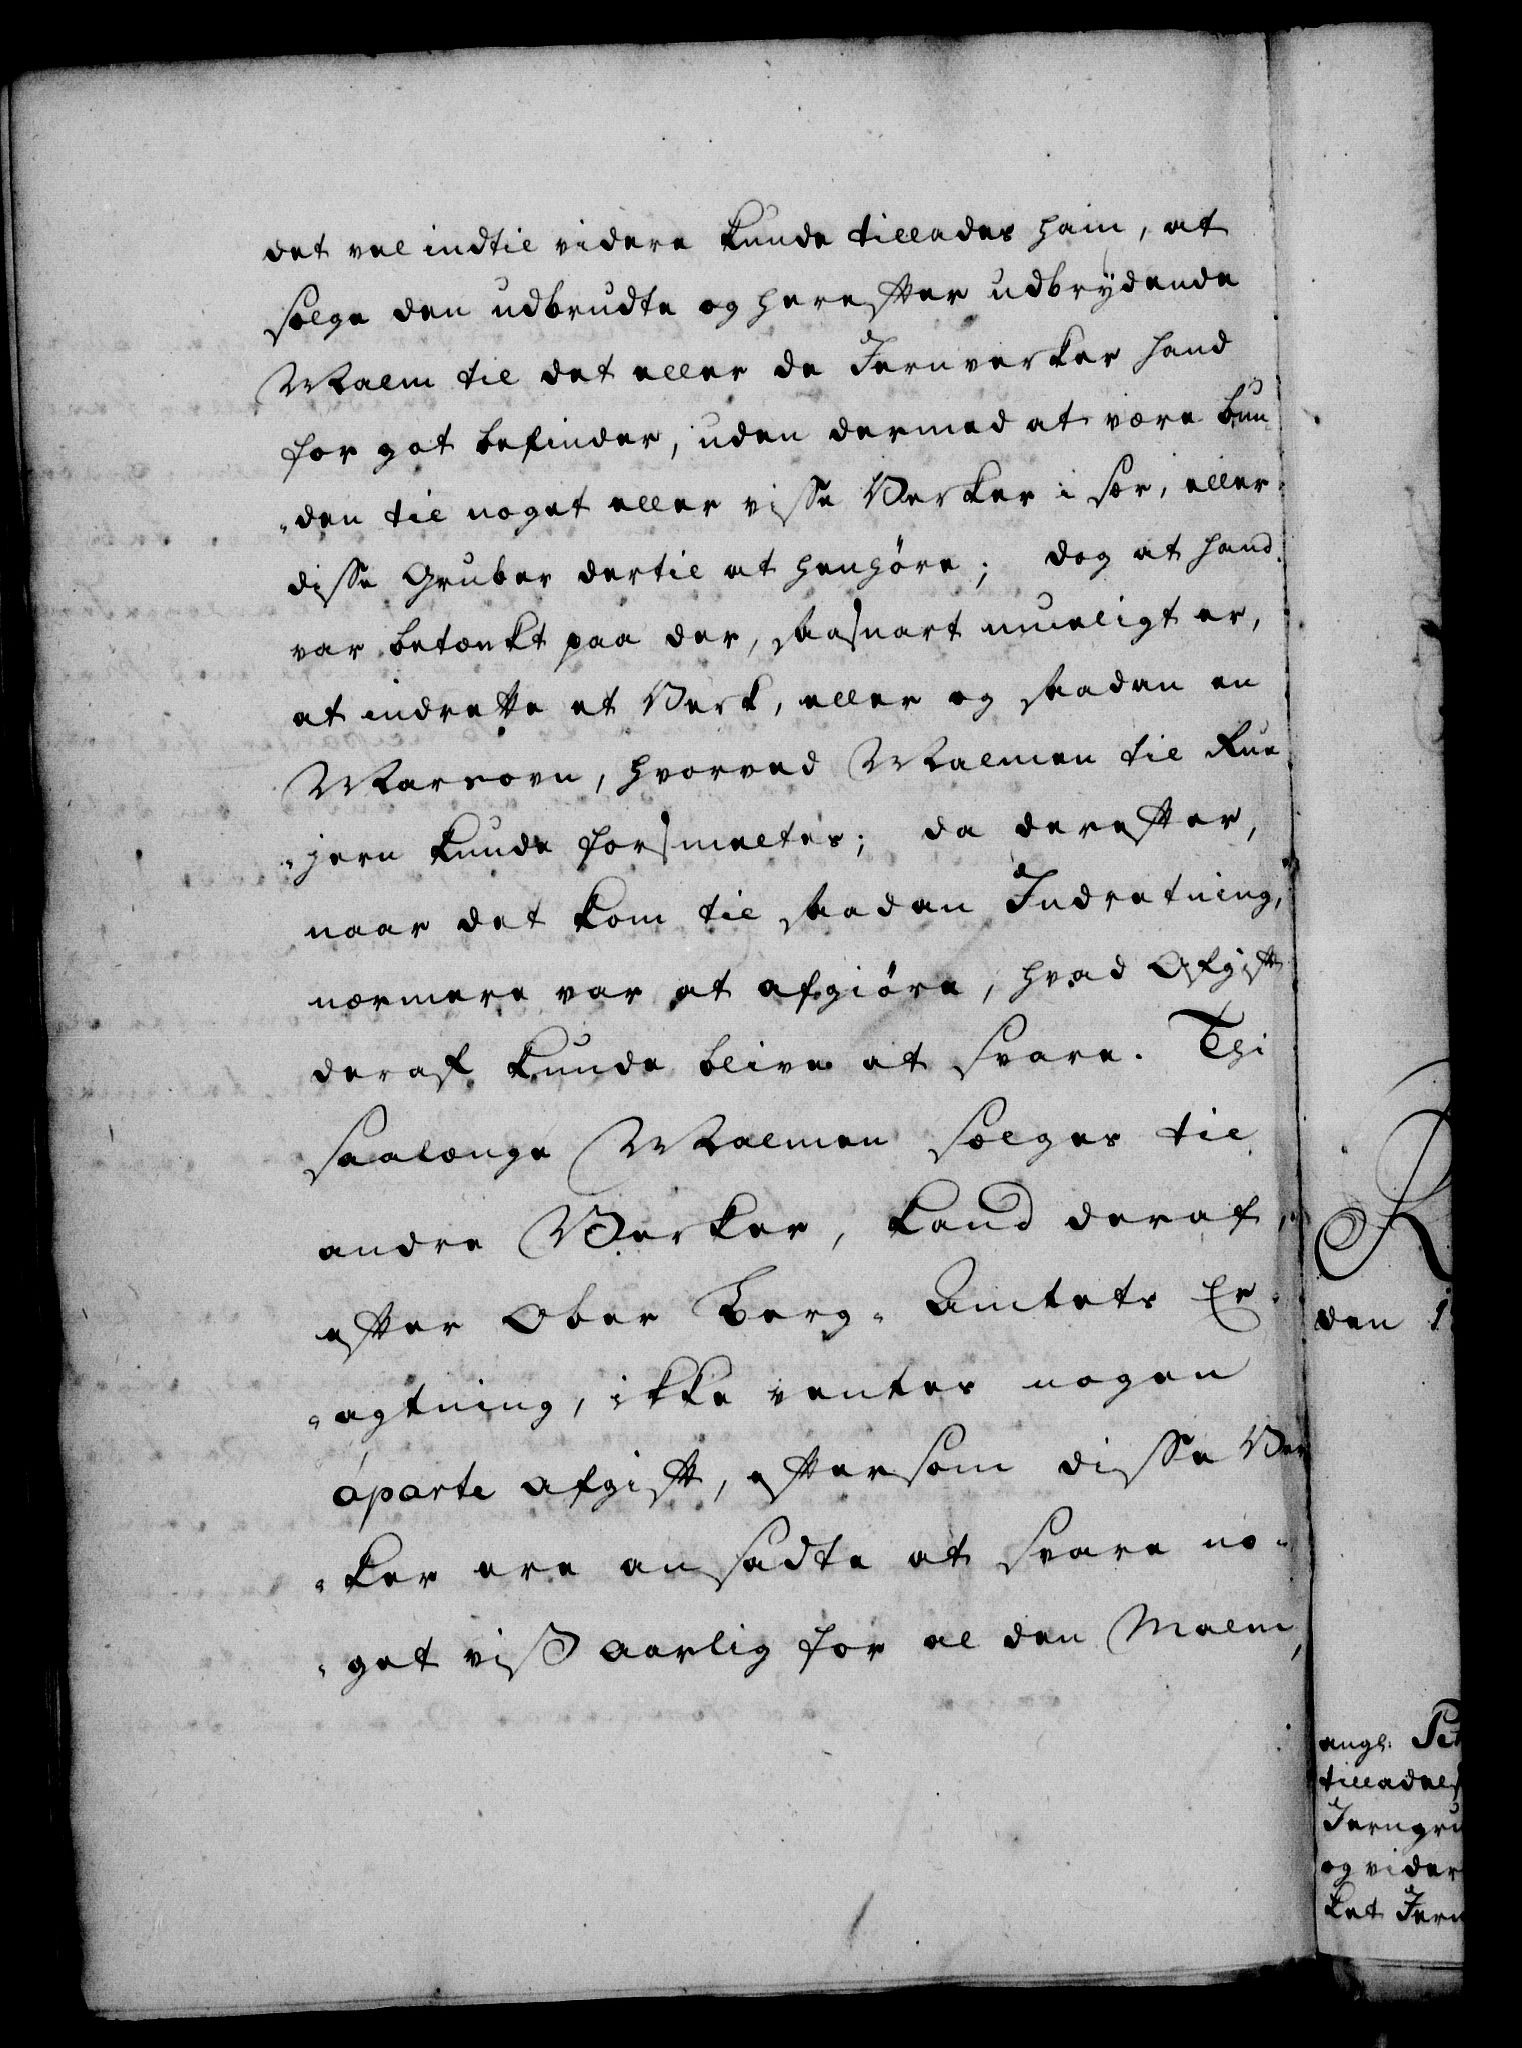 det vel indtil videre kunde tillades ham, at
sælge den udbrudte og herefter udbrydende
Malm til det eller de Jernverker hand
for got befinder, uden dermed at være bun-
-den til noget eller visse Verker i sær, eller
disse Gruber dertil at henhøre; dog at hand
var betænkt paa der, saasnart mueligt er,
at indrette et Verk, eller og saadan en
Marsovn, hvorved Malmen til Rue
-jern kunde forsmeltes; da derefter,
naar det kom til saadan Indretning,
nærmere var at afgiøre, hvad Afgift
deraf kunde blive at svare. Thi
saalænge Malmen sælges til
andre Verker, kand deraf,
efter Ober Berg-Amtets Er-
-agtning, ikke ventes nogen
àparte Afgift, eftersom disse Ver
-ker ere ansadte at svare no-
-get vist aarlig for al den Malm,
den 1
angl.
tillades
Jerngru
og vider
ket Jern